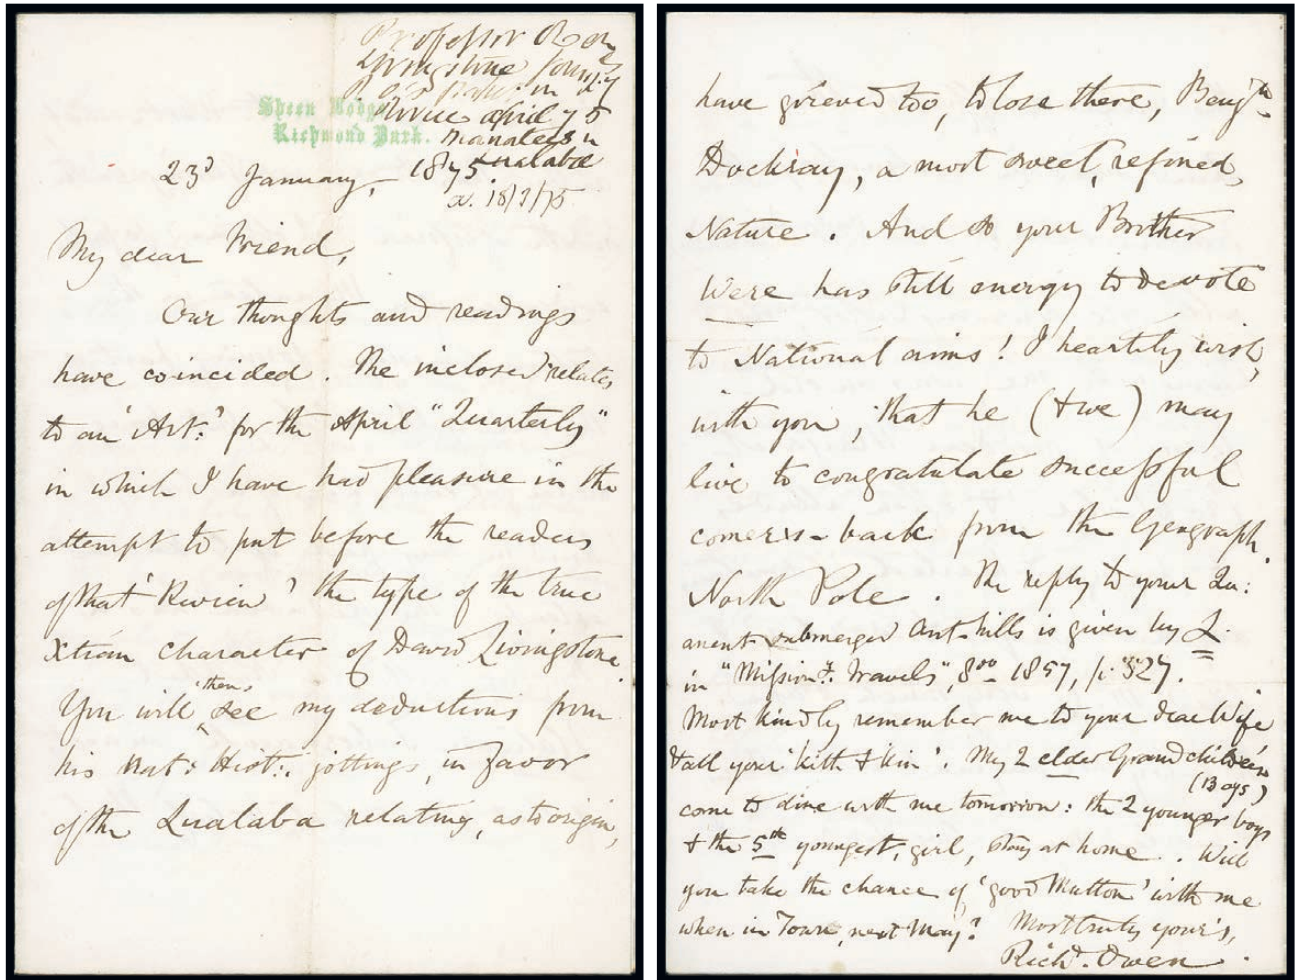 Professor Owen
Livingstone
in
April 75
Sheen Lodge,
Richmond Park.
manatees in
Lualaba
23d January, 1875.
a. 18/3/75
My dear Friend,
Our thoughts and readings
have coincided. The inclosed relates
to an 'Art.' for the April "Quarterly"
in which I have had pleasure in the
attempt to put before the readers
of that 'Review' the type of the true
Xtian character of David Livingstone.
You will then see my deductions from
his Nat: Hist: jottings, in favor
of the Lualaba relating, as to origin,
have grieved too, to lose there, Benjn
Dockray, a most sweet, refined,
Nature. And so your Brother
Were has still energy to devote
to National aims! I heartily wish,
with you, that he (& we) may
live to congratulate successful
comers-back from the Geograph.
North Pole. The reply to your Qu:
anent submerged Ant-hills is given by L.
in "Mission: Travels", 8vo 1857, p. 327.
Most kindly remember me to your dear Wife
& all your 'kith & kin'. My 2 elder Grandchildren
(Boys)
come to dine with me tomorrow: the 2 younger boys
& the 5th youngest, girl, stay at home. Will
you take the chance of 'good Mutton' with me
when in Town, next May? Most truly your's,
Richd. Owen.